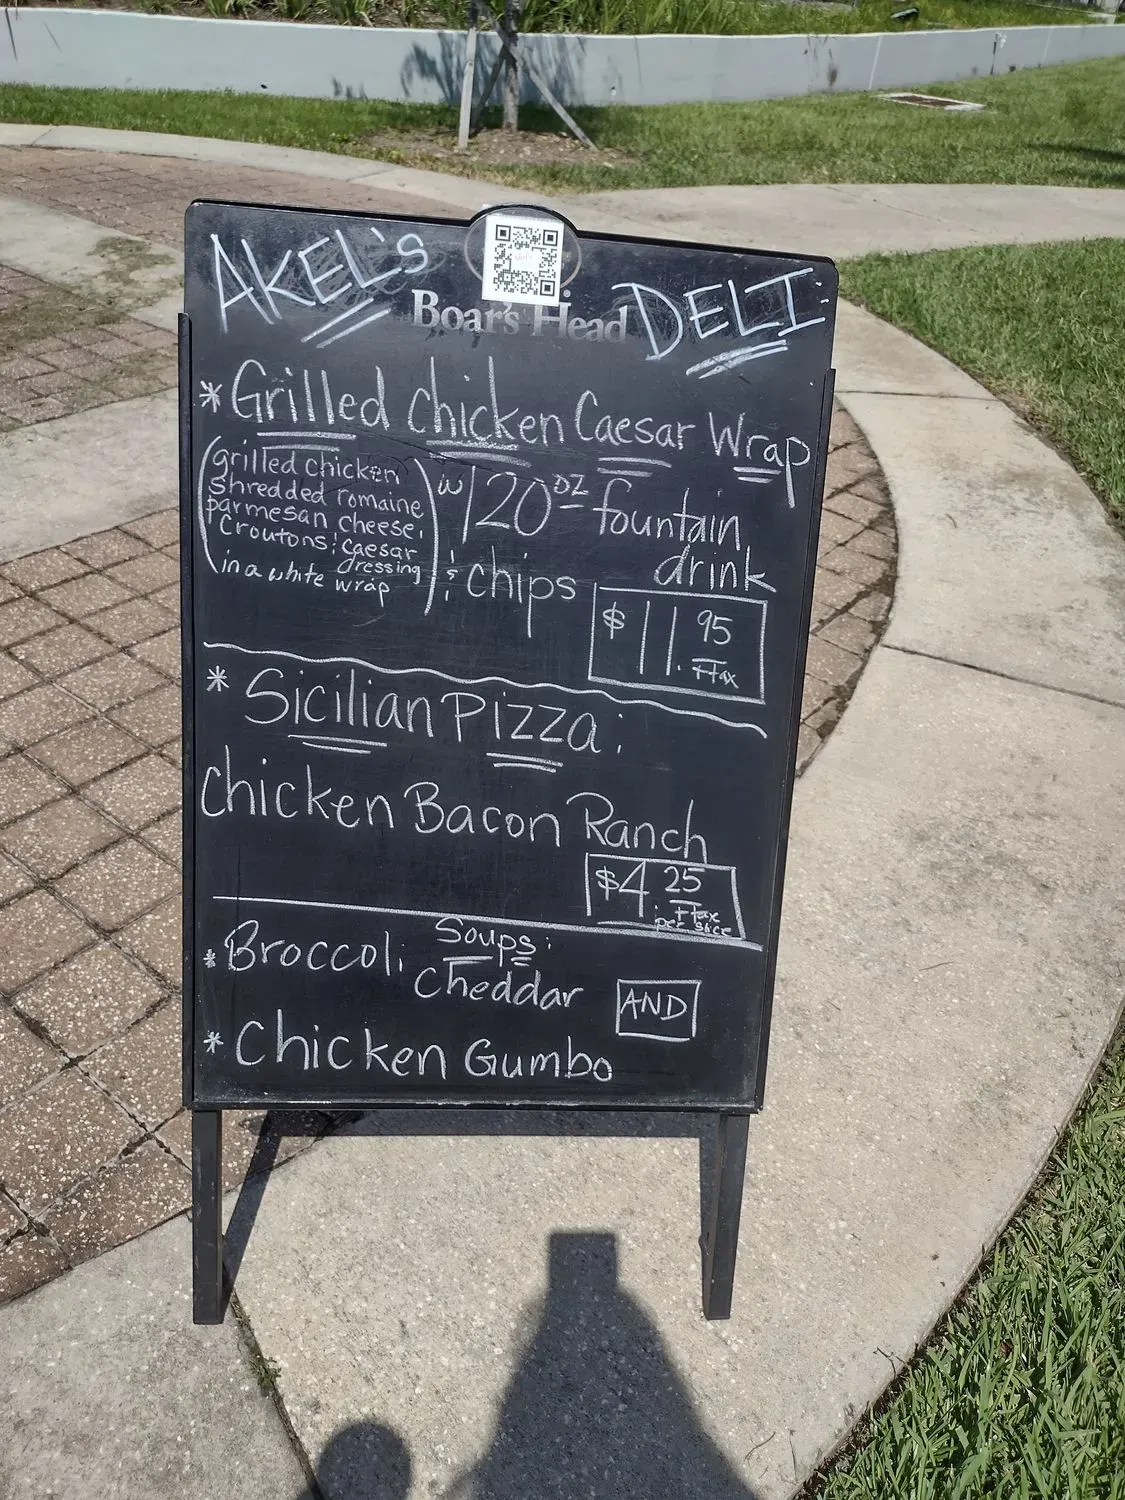 AKEL's DELI:
Boar's Head®
* Grilled Chicken Caesar Wrap
(grilled chicken
shredded romaine
parmesan cheese,
croutons & caesar
dressing
in a white wrap)
w/ 20 oz fountain
drink
& chips
$11.95
+tax
* Sicilian Pizza:
Chicken Bacon Ranch
$4.25
+tax
per slice
Soups:
* Broccoli Cheddar AND
* Chicken Gumbo